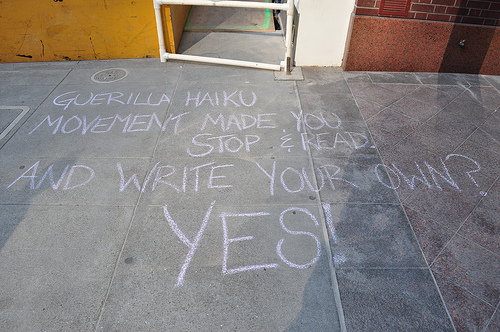 GUERILLA HAIKU
MOVEMENT MADE YOU
STOP & READ.
AND WRITE YOUR OWN?
YES!